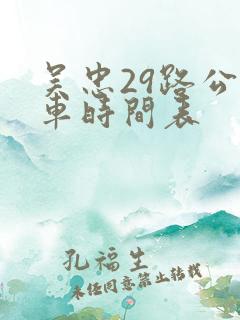 吴忠29路公
車時間表
孔福生
未经同意禁止转载